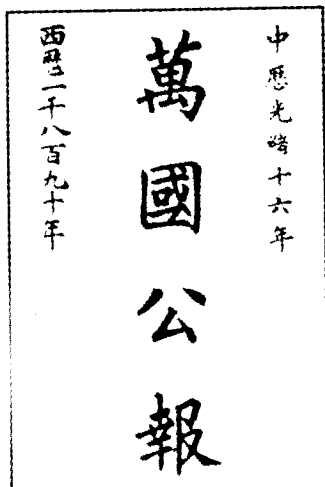 中歷光緒十六年
萬國公報
西歷一千八百九十年